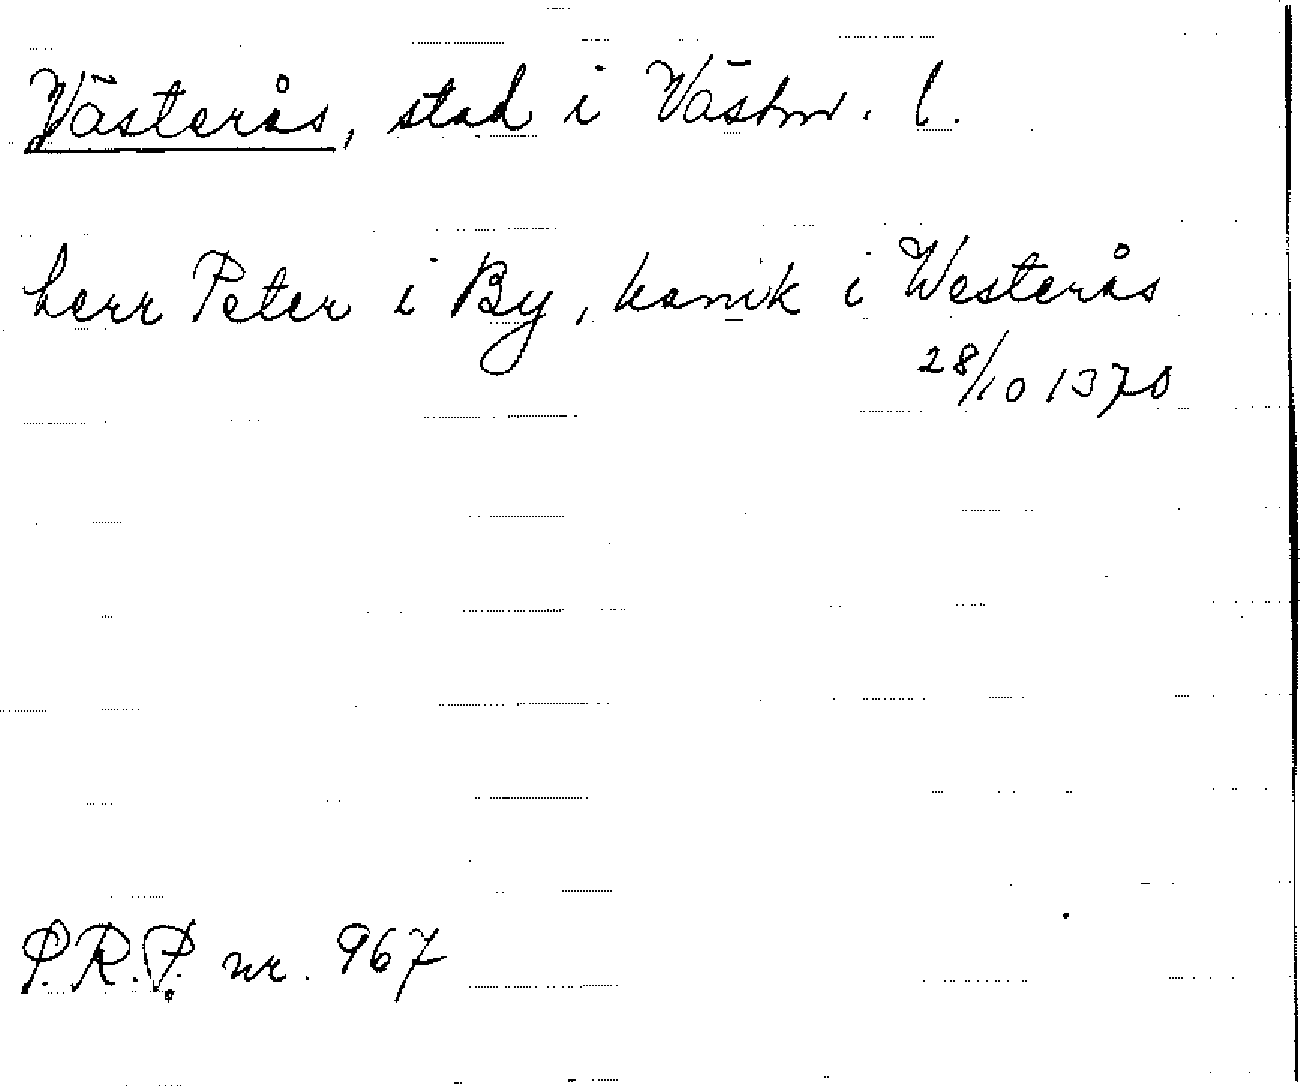 Västerås, stad i Västm. l.
herr Peter i By, kanik i Westerås
28/10 1370
P.R.P. nr. 967